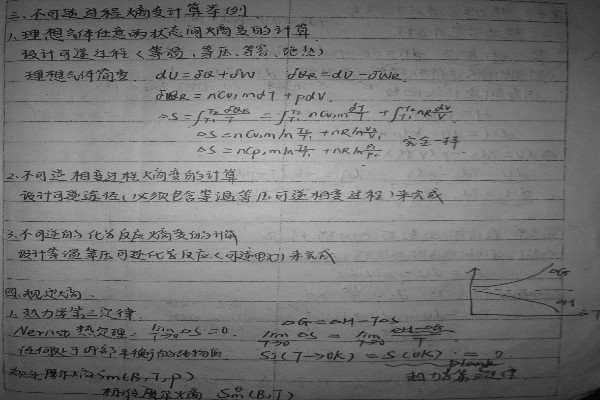 三、不可逆过程熵变计算举例
1、理想气体任意两状态间熵变的计算
设计可逆过程(等温、等压、等容、绝热)
理想气体简变 dU=δQ+δW δQR=dU-δWR
δQR=nCv,mdT+pdV
△S=∫T1T2 δQR/T = ∫T1T2 nCv,m dT/T + ∫T1T2 nR dV/V
△S=nCv,m ln T2/T1 + nR ln V2/V1
△S=nCp,m ln T2/T1 + nR ln P1/P2 完全一样
2、不可逆相变过程熵变的计算
设计可逆途径(必须包含等温等压可逆相变过程)来完成
3、不可逆的化学反应熵变的计算
设计等温等压可逆化学反应(可逆电池)来完成
四、规定熵、
1、热力学第三定律 △G=△H-T△S
Nernst热定理: lim T→0 △S=0. lim T→0 △S = lim T→0 △H-△G/T
任何处于内部平衡的纯物质 S(T→0K)=S(0K)=0
规定摩尔熵Sm(B,T,p) 热力学第三定律
标准摩尔熵 Sm(B,T)
△G
△H
T